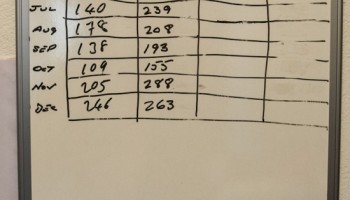 JUL 140 239
AUG 178 208
SEP 138 193
OCT 109 155
NOV 205 288
DEC 246 263